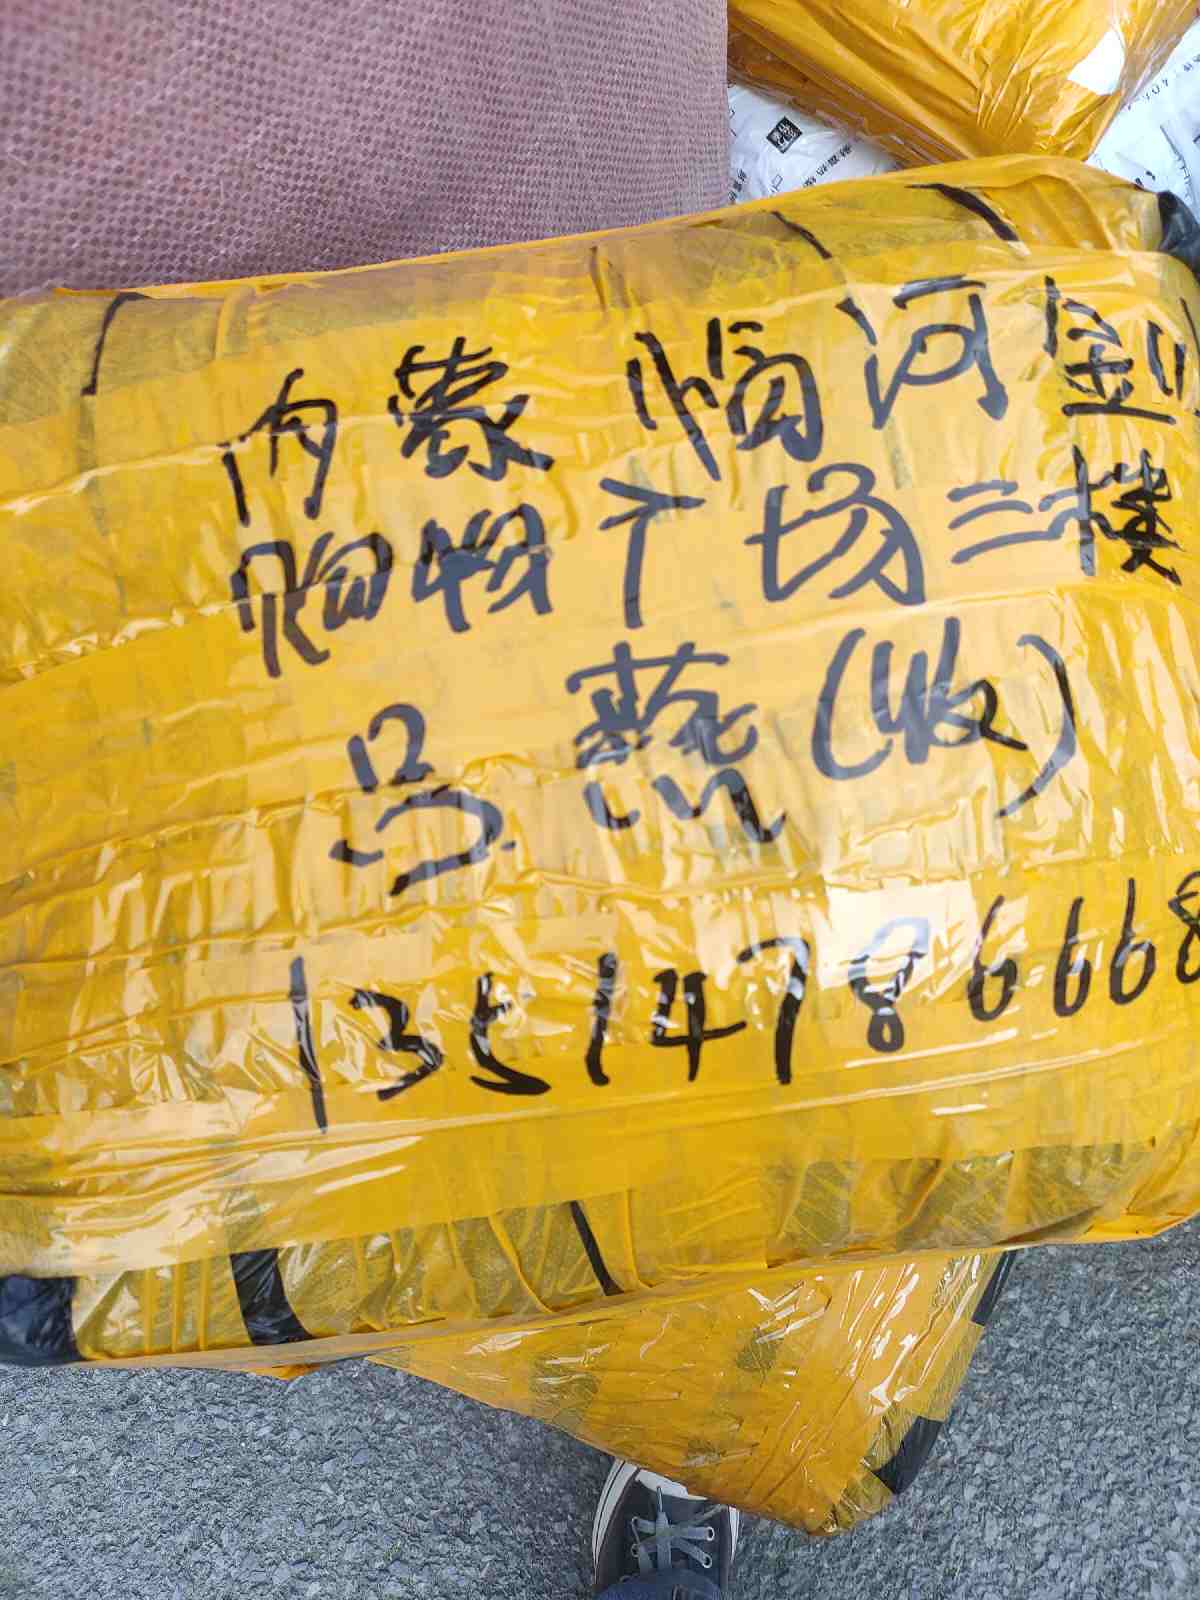 内蒙 临河金川
购物广场三楼
吕燕(收)
13514786668